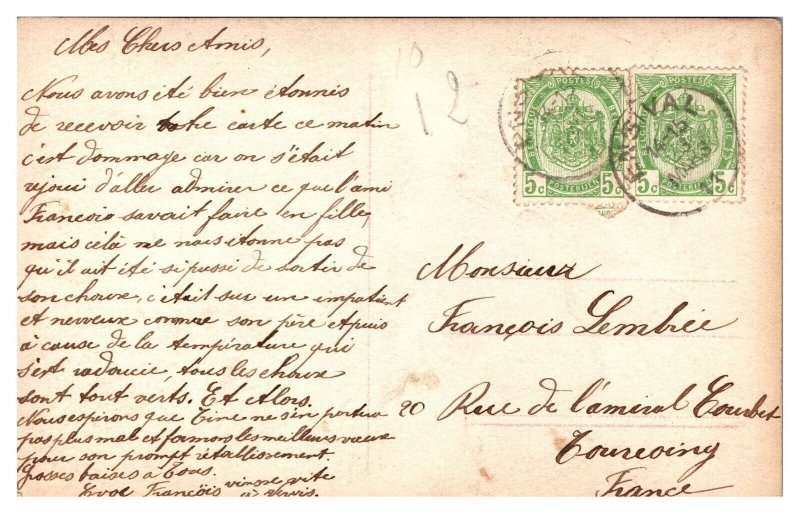 Mes Chers Amis,
Nous avons été bien étonnés
de recevoir votre carte ce matin
c'est dommage car on s'était
rejoui d'aller admirer ce que l'ami
François savait faire en fille,
mais celà ne nous étonne pas
qu'il ait été si pressé de sortir de
son choux, c'était sur un impatient
et nerveux comme son père et puis
à cause de la température qui
s'est radoucie, tous les choux
sont tout verts. Et Alors.
Nous espérons que Tine ne s'en portera
pas plus mal et formons les meilleurs vœux
pour son prompt rétablissement.
Grosses baises à Tous.
François viendre vite
10
12
POSTES POSTES
5c POSTERIJEN 5c 5c POSTERIJEN 5c
ENSIVAL
14-15
Monsieur
François Lembrée
20 Rue de l'amiral Courbet
Tourcoing
France